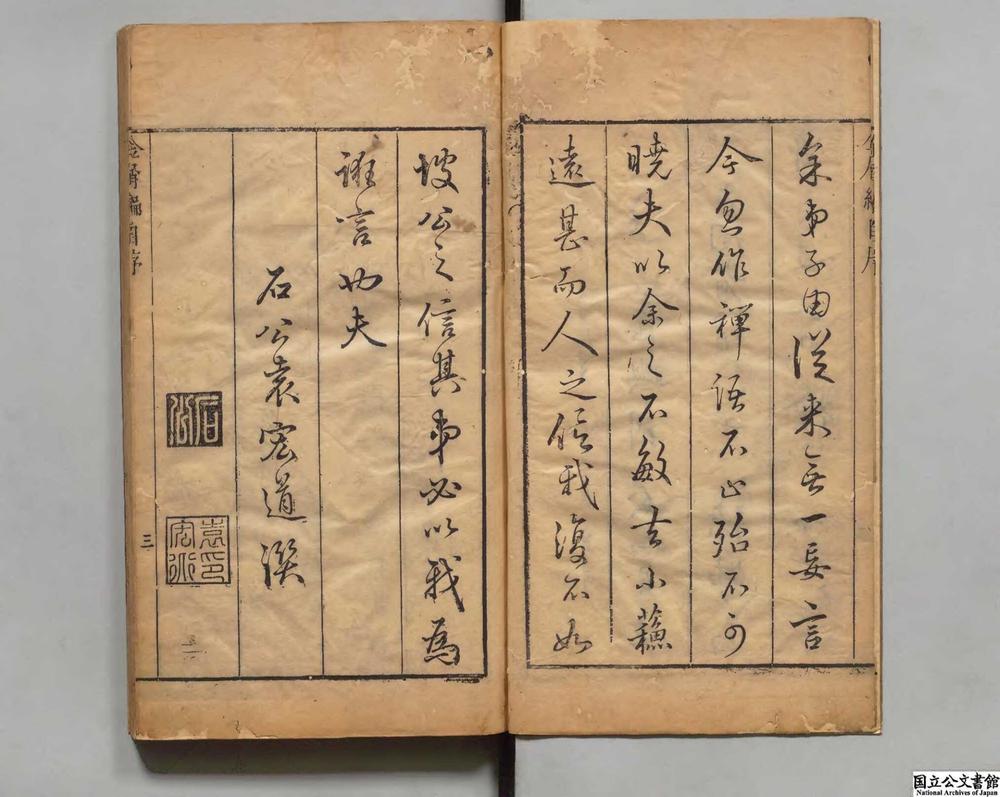 金屑編自序
余弟子由從来無一妄言
今忽作禪語不止殆不可
曉夫以余之不敏去小蘓
遠甚而人之信我復不如
坡公之信其弟必以我為
誑言也夫
石公袁宏道譔
石公
袁印宏道
金屑編自序
三
国立公文書館
National Archives of Japan